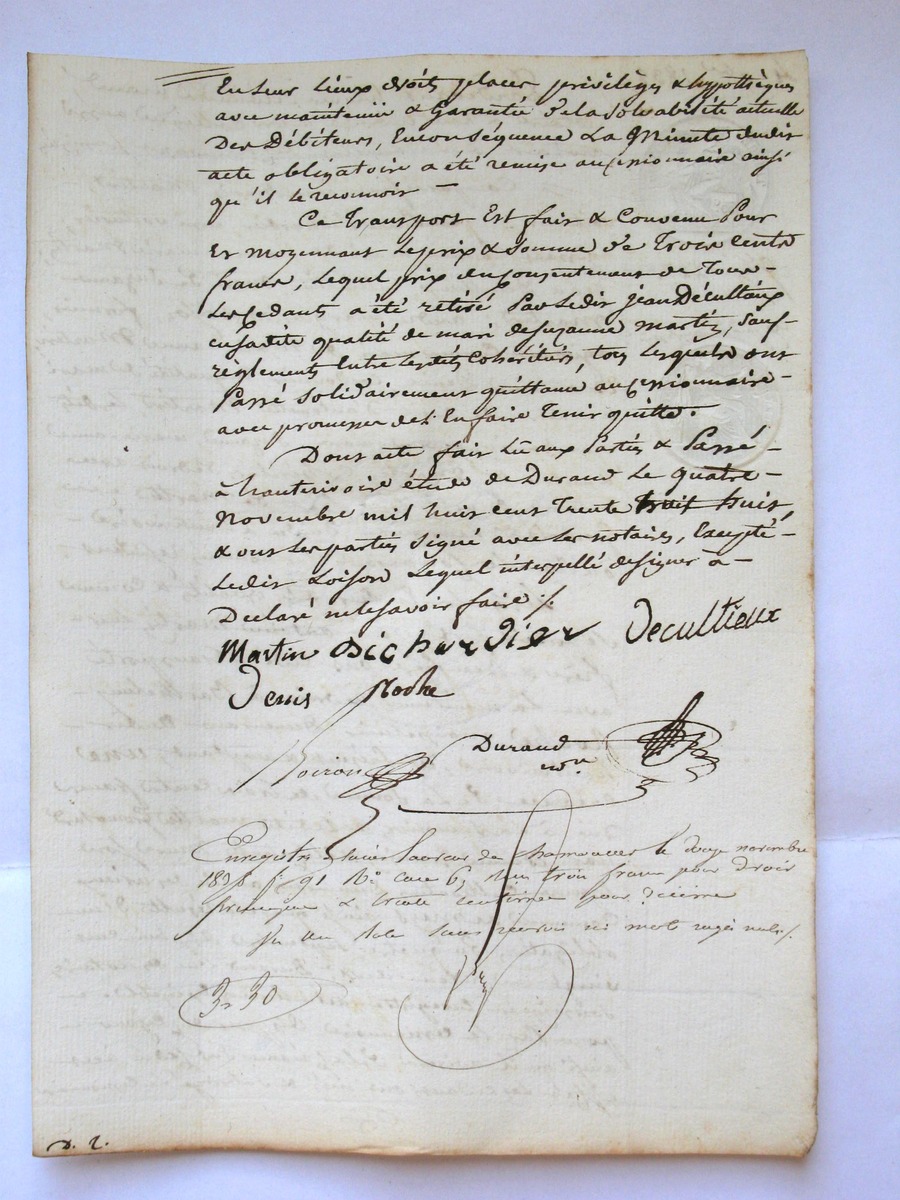 En leur lieux droits places privilèges & hypothèques
avec maintenüe & Garantie de la solvabilité actuelle
Des Débiteurs, En conséquence La Minute dudit
acte obligatoire a été remise au cessionnaire ainsi
qu'il le reconnoit —
Ce Transport Est fait & Convenu Pour
Et moyennant Le prix & somme de Trois cents
francs, Lequel prix du consentement de Tous -
Les Cedants a été retiré Par Ledit jean Décultieux
en sadite qualité de mari de suzanne martin, sauf -
règlements Entre Lesdits Cohéritiers, tous Lesquels ont
Passé solidairement quittance au cessionnaire -
avec promesse de l'En faire Tenir quitte.
Dont acte fait Lû aux Parties & Passé -
à hauterivoire étude de Durand Le quatre -
Novembre mil huit cent Trente huit,
& ont Les parties signé avec Les notaires, Excepté -
Ledit Loison Lequel interpellé de signer a -
Declaré ne le savoir faire ./.
Martin Dichardier Decultieux
Denis Roche
Boiron Durand
nore
Enregistré à Saint Laurent de Chamousset le douze novembre
1838 fo 91 Vo case 6, reçu trois francs pour Droit
principal & trente centimes pour Décime
mots rayés nuls ./.
3f 30
D. 2.